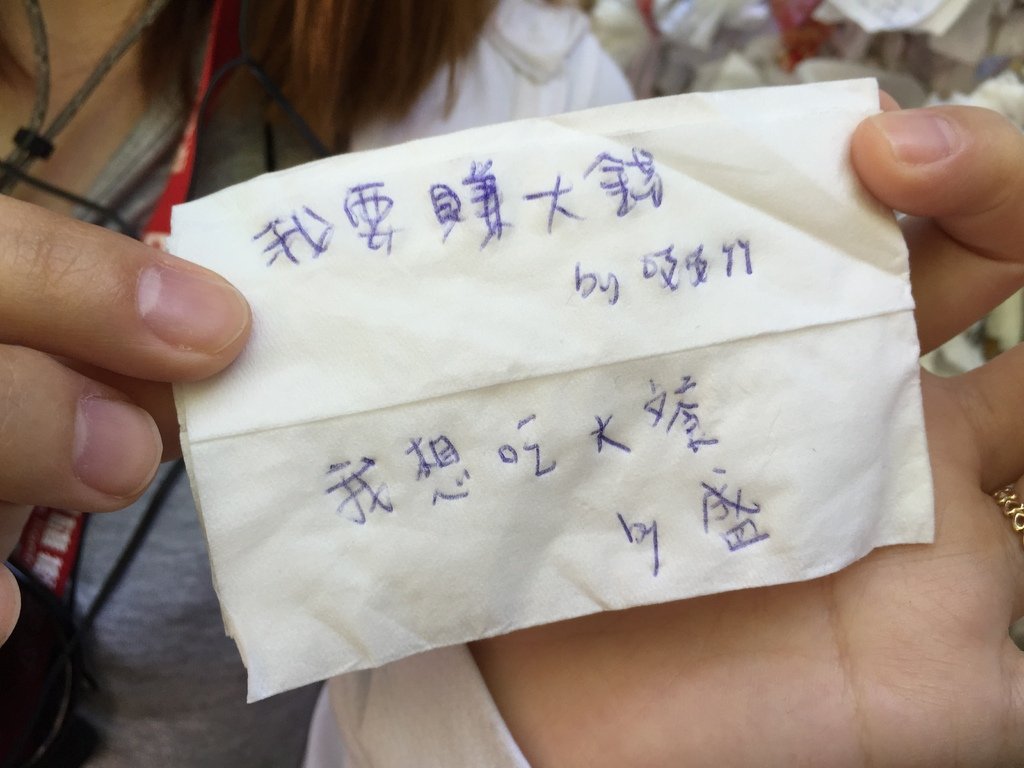 我要賺大錢
by 吱吱竹
我想吃大餐
by 盛